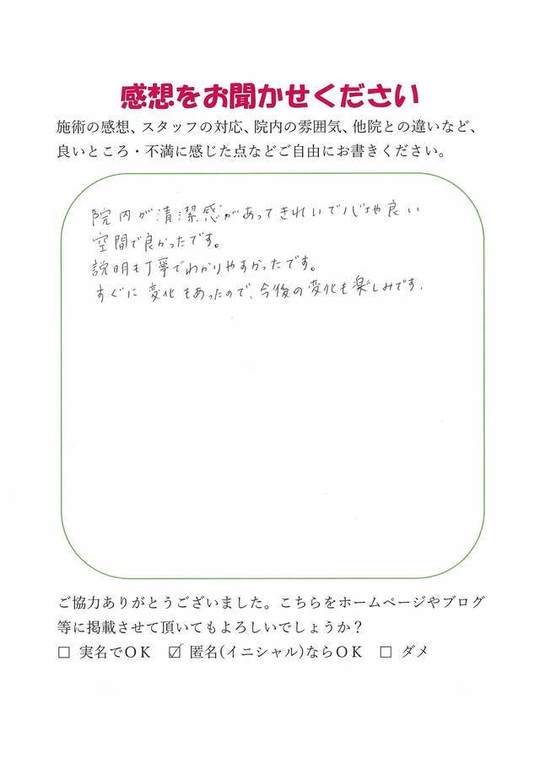 感想をお聞かせください
施術の感想、スタッフの対応、院内の雰囲気、他院との違いなど、
良いところ・不満に感じた点などご自由にお書きください。
院内が清潔感があってきれいで心地や良い
空間で良かったです。
説明も丁寧でわかりやすかったです。
すぐに変化もあったので、今後の変化も楽しみです.
ご協力ありがとうございました。こちらをホームページやブログ
等に掲載させて頂いてもよろしいでしょうか？
□ 実名でOK ☑ 匿名(イニシャル)ならOK □ ダメ